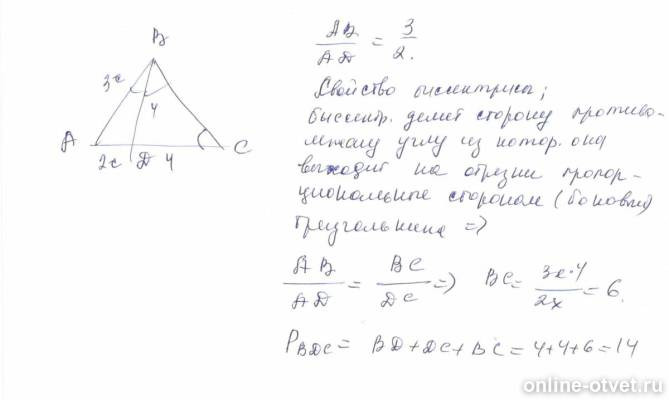 B
3x
4
A
C
2x D 4
AB/AD = 3/2.
Свойство биссектрисы;
биссектр. делит сторону противо-
углу из котор. она
выходит на отрезки пропор-
циональные сторонам (боковым)
треугольника =>
AB/AD = BC/DC => BC = 3x·4/2x = 6.
P BDC = BD + DC + BC = 4+4+6 = 14
online-otvet.ru